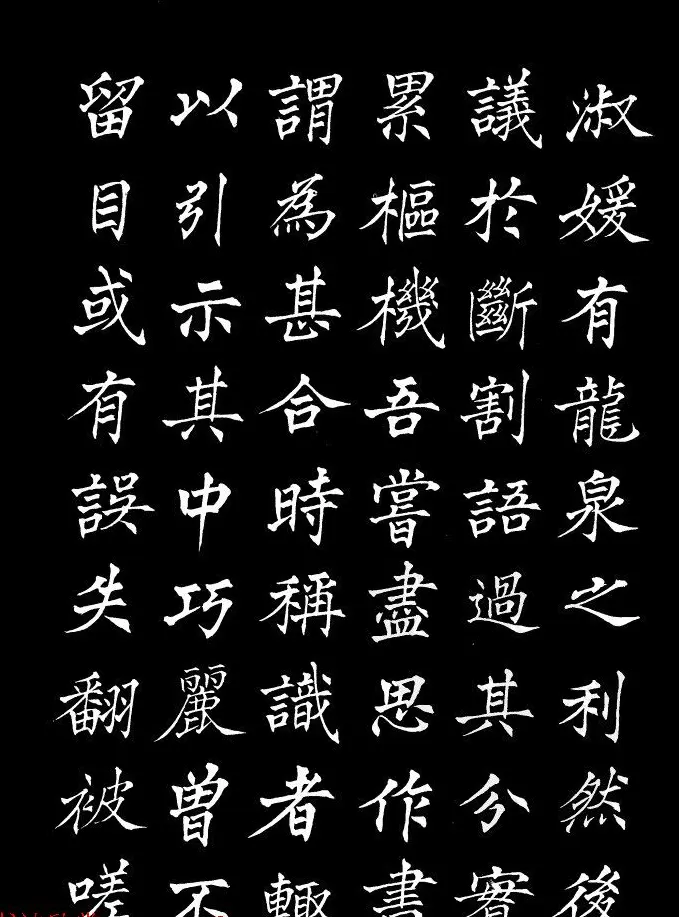 淑媛有龍泉之利然後
議於斷割語過其分實
累樞機吾嘗盡思作書
謂為甚合時稱識者輒
以引示其中巧麗曾不
留目或有誤失翻被嗟